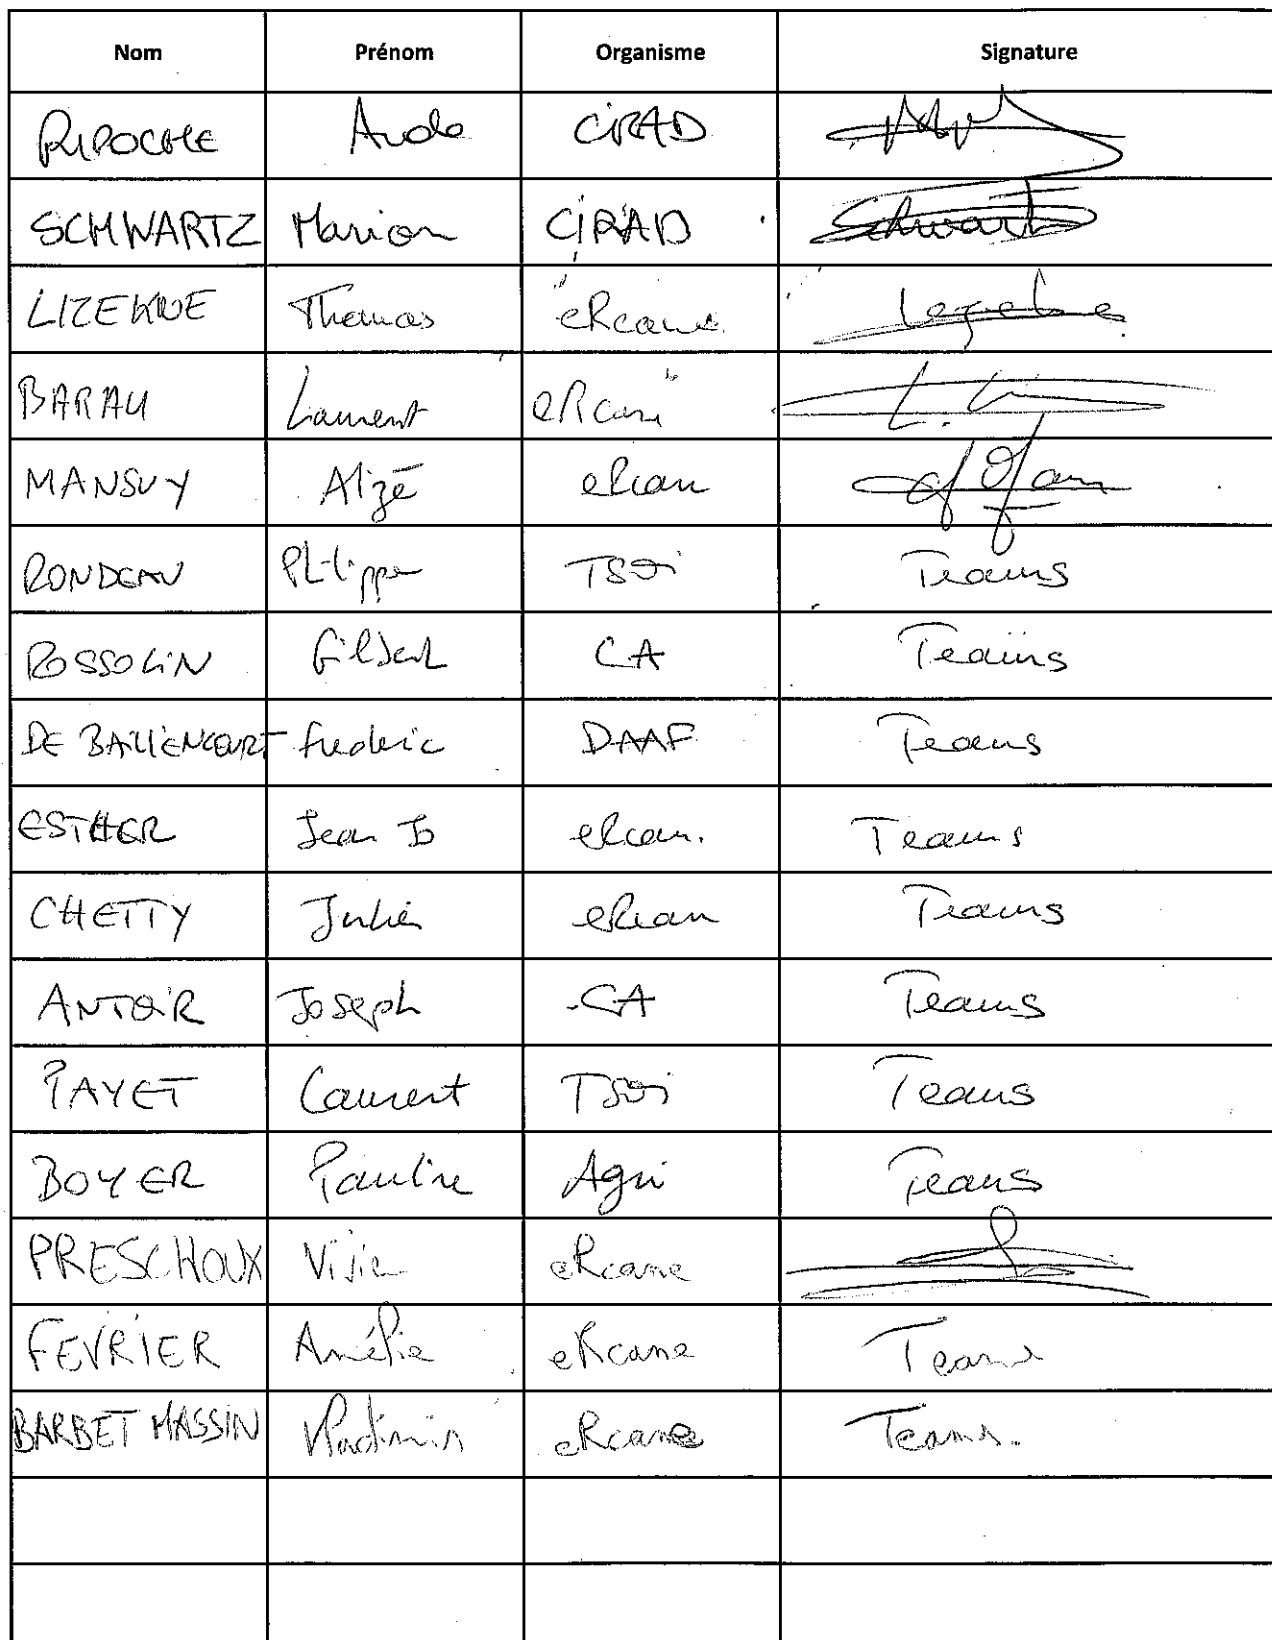 Nom Prénom Organisme Signature
RIPOCHE Aude CIRAD
SCHWARTZ Marion CIRAD Schwartz
LIZEKNE Thomas eRcane
BARAU Laurent eRcane
MANSUY Alizé eRcane
RONDEAU Philippe TSOi Teams
ROSSOLIN Gilbert CA Teams
DE BAILLENCOURT frederic DAAF Teams
ESTHER Jean Jo eRcane. Teams
CHETTY Julien eRcane Teams
ANTOIR Joseph CA Teams
PAYET Laurent TSOi Teams
BOYER Pauline Agri Teams
PRESCHOUX eRcane
FEVRIER Amélie eRcane Teams
BARBET MASSIN Vladimir eRcane Teams.